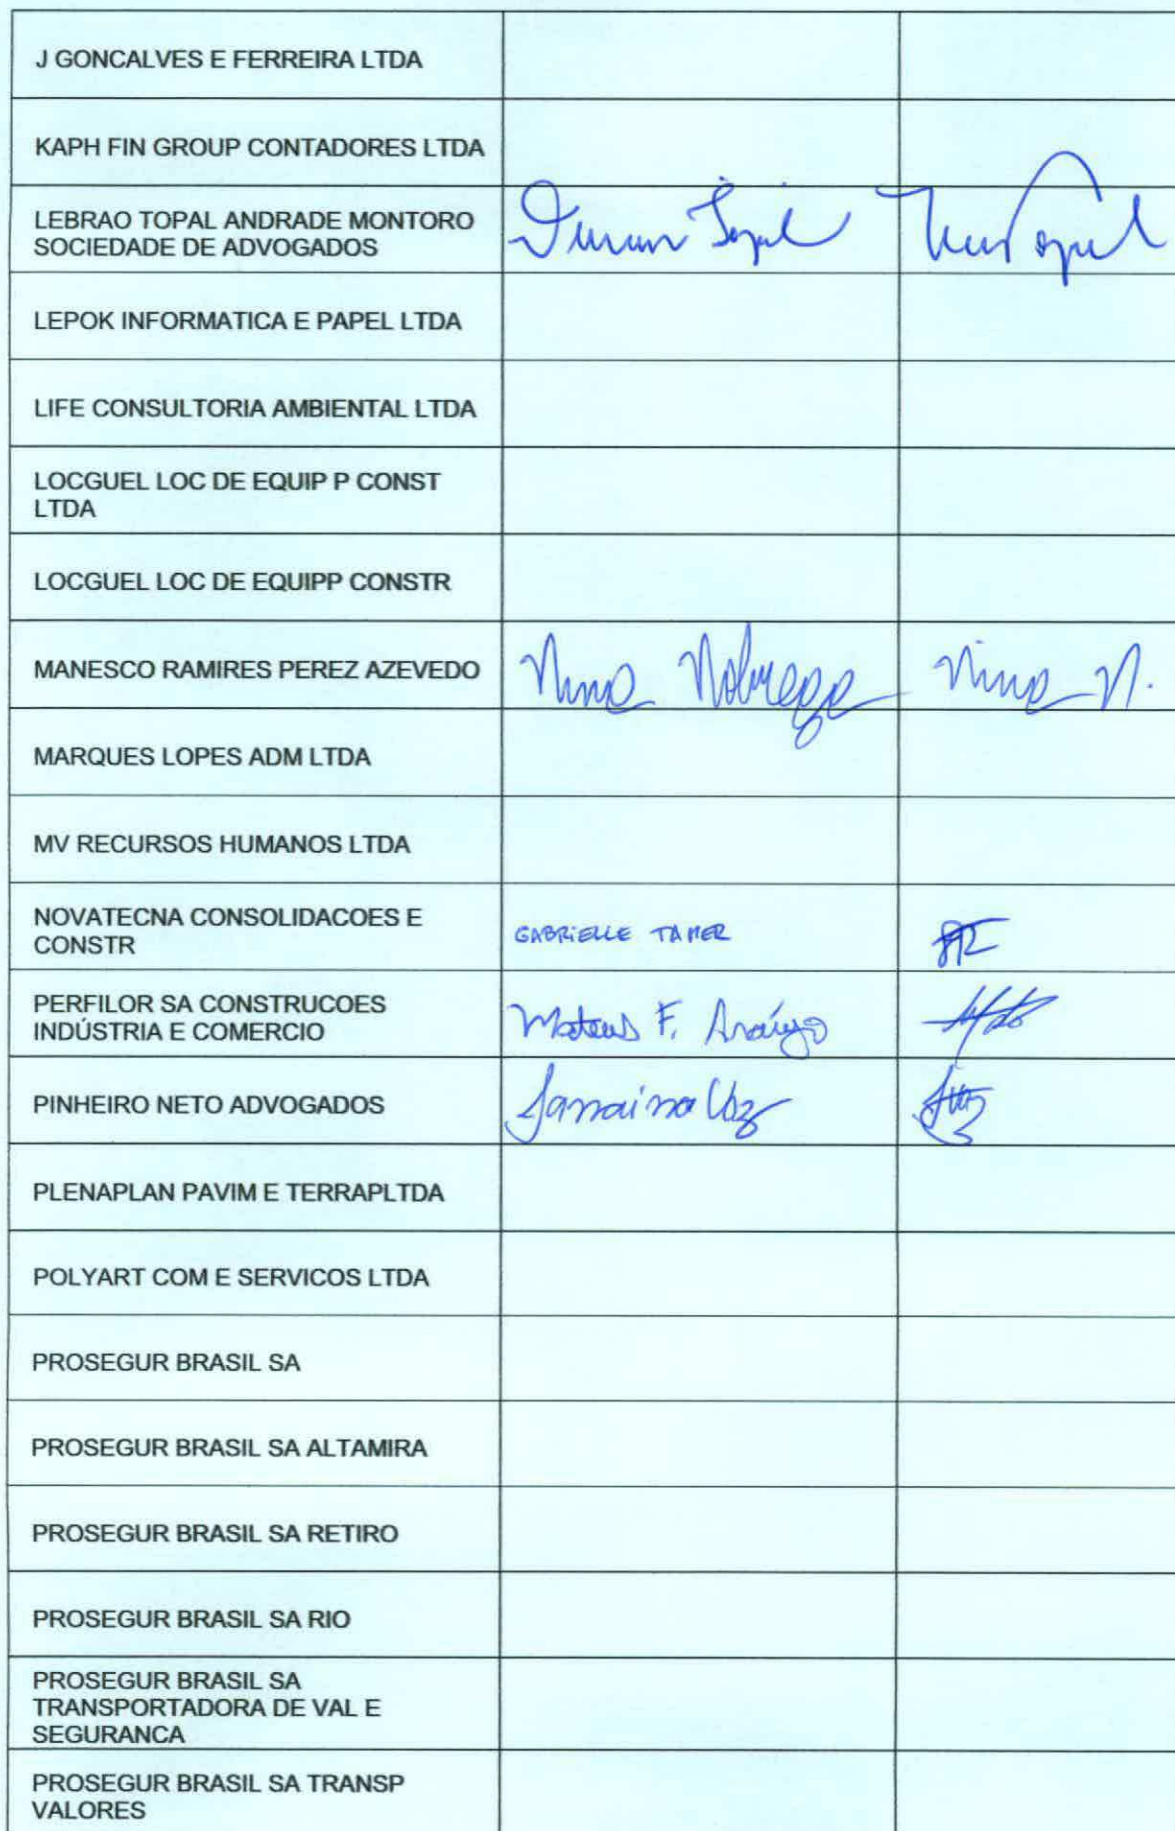 J GONCALVES E FERREIRA LTDA
KAPH FIN GROUP CONTADORES LTDA
LEBRAO TOPAL ANDRADE MONTORO
SOCIEDADE DE ADVOGADOS
LEPOK INFORMATICA E PAPEL LTDA
LIFE CONSULTORIA AMBIENTAL LTDA
LOCGUEL LOC DE EQUIP P CONST
LTDA
LOCGUEL LOC DE EQUIPP CONSTR
MANESCO RAMIRES PEREZ AZEVEDO Nina Nobrega Nina N.
MARQUES LOPES ADM LTDA
MV RECURSOS HUMANOS LTDA
NOVATECNA CONSOLIDACOES E
CONSTR
GABRIELLE TAMER
PERFILOR SA CONSTRUCOES
INDÚSTRIA E COMERCIO
Mateus F. Araújo
PINHEIRO NETO ADVOGADOS Janaina
PLENAPLAN PAVIM E TERRAPLTDA
POLYART COM E SERVICOS LTDA
PROSEGUR BRASIL SA
PROSEGUR BRASIL SA ALTAMIRA
PROSEGUR BRASIL SA RETIRO
PROSEGUR BRASIL SA RIO
PROSEGUR BRASIL SA
TRANSPORTADORA DE VAL E
SEGURANCA
PROSEGUR BRASIL SA TRANSP
VALORES